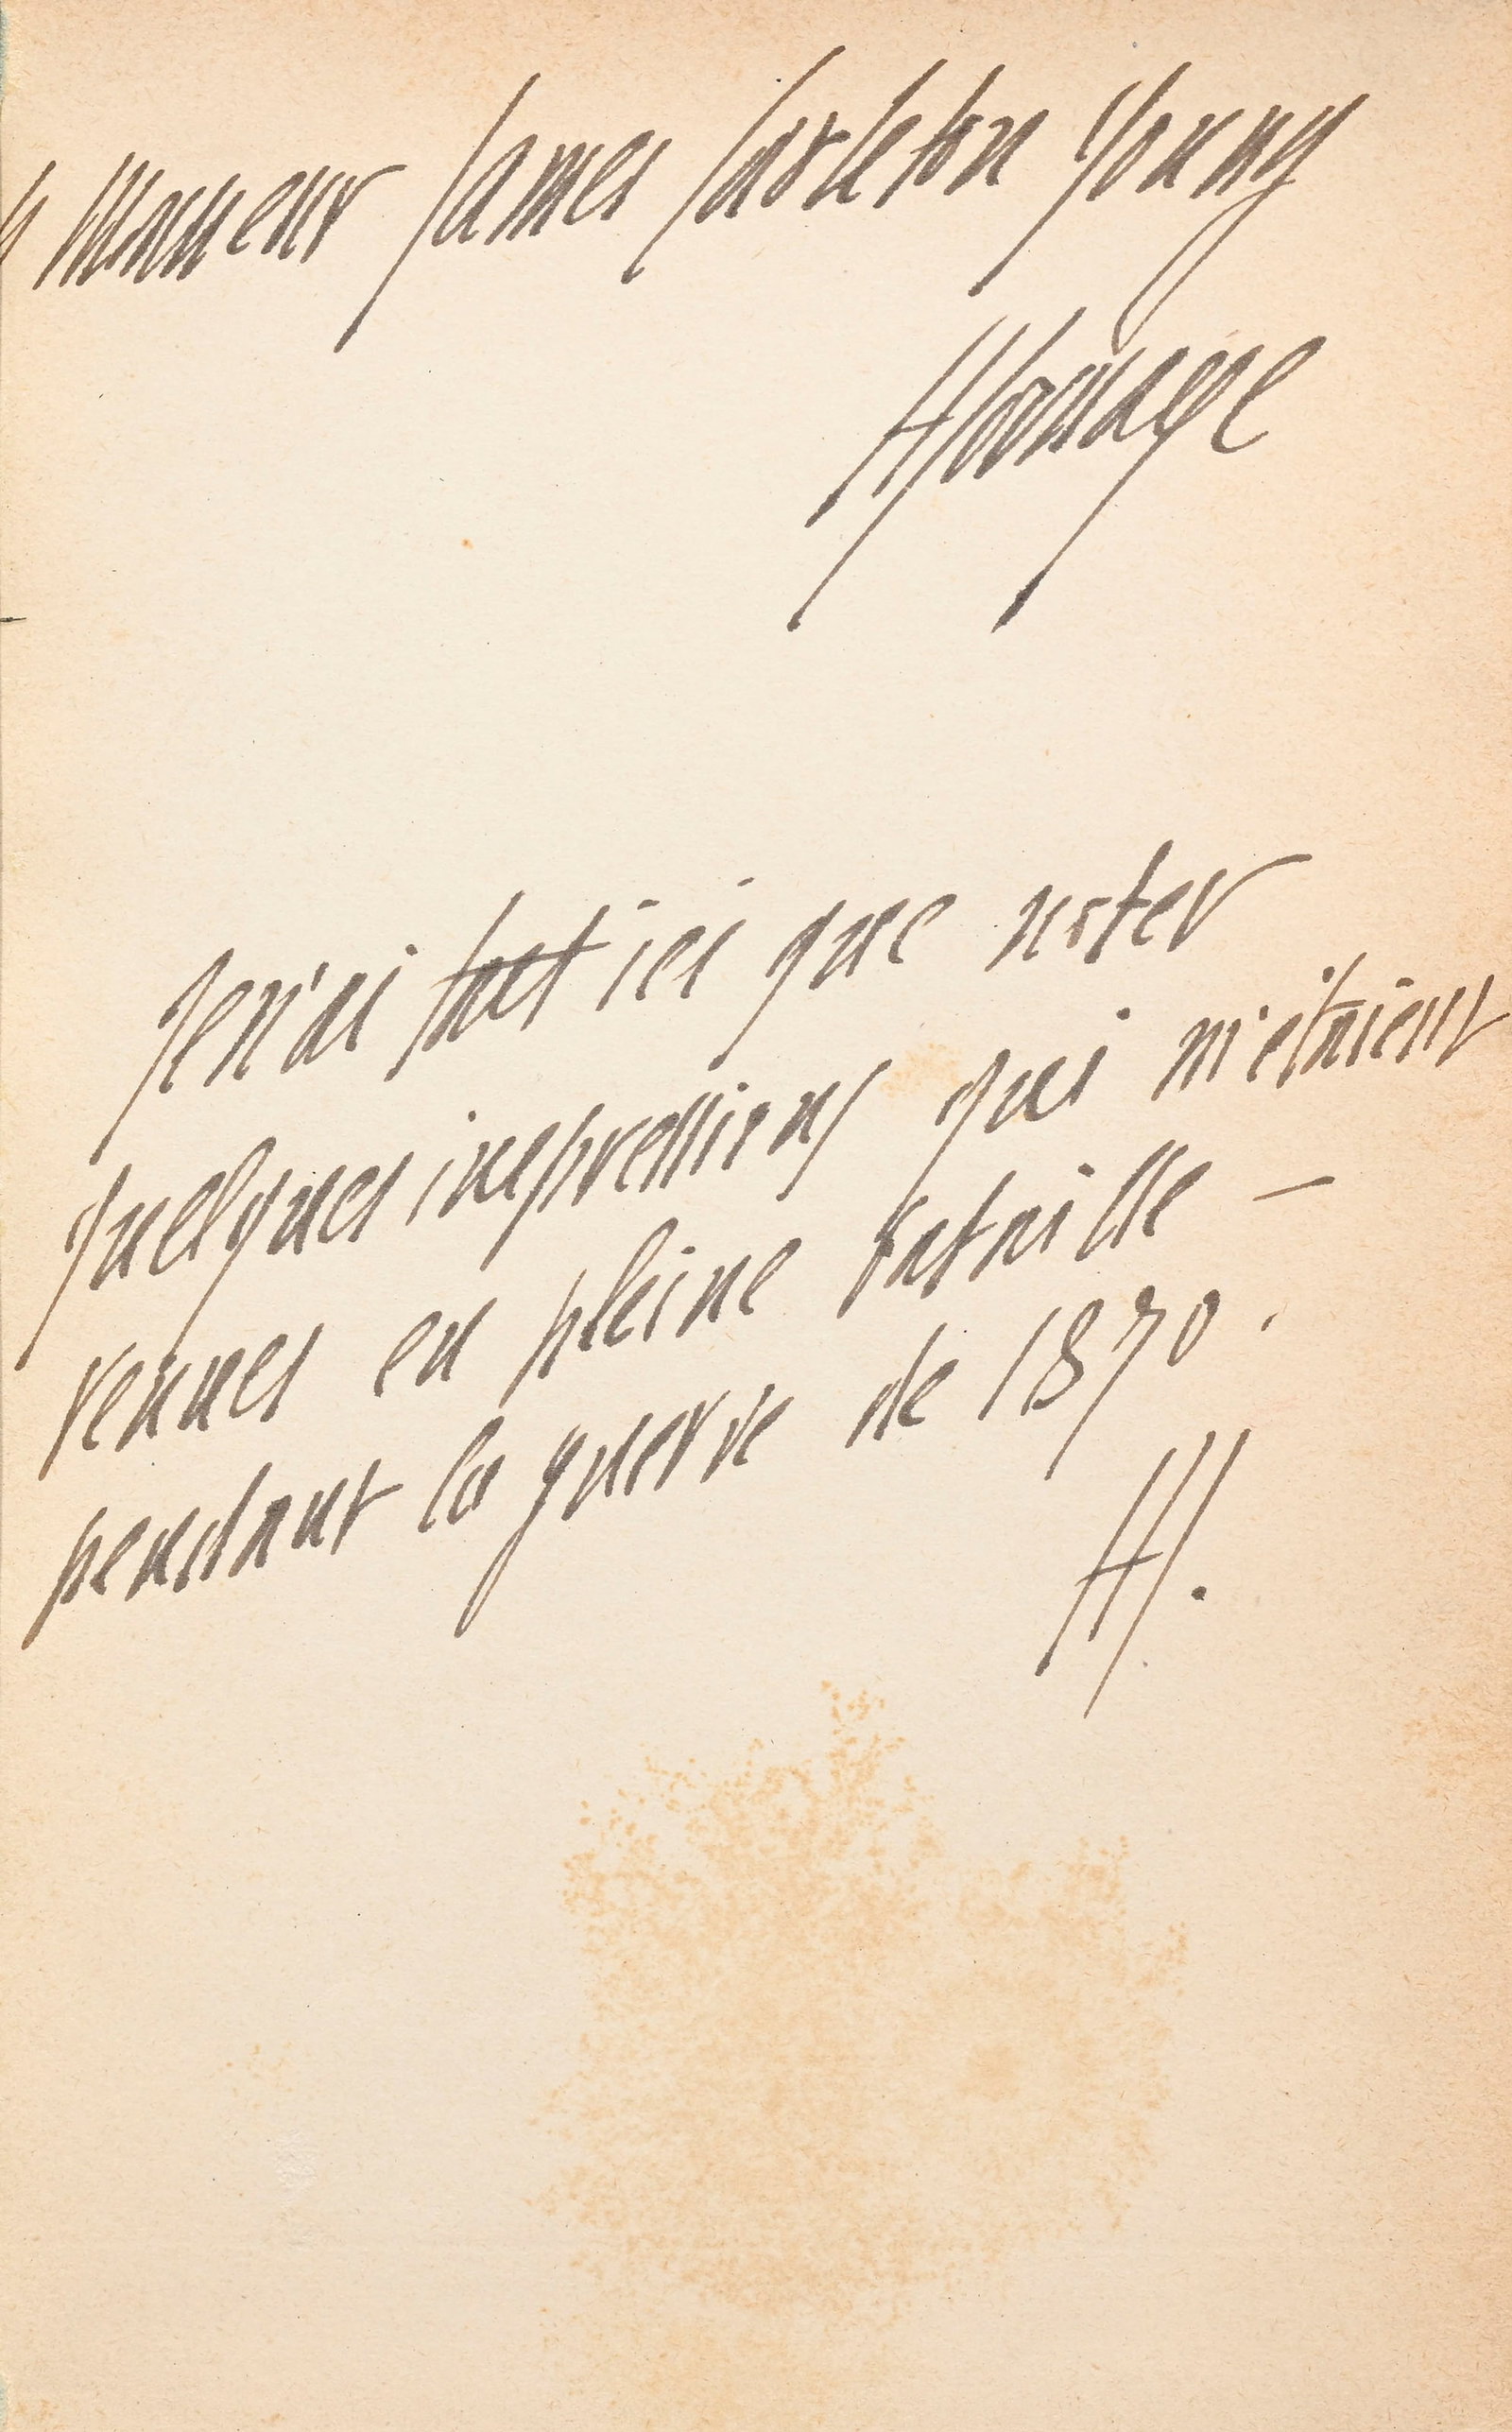 à Monsieur James Carleton Young
Hommage
Je n'ai fait ici que noter
quelques impressions qui m'étaient
venues en pleine bataille —
pendant la guerre de 1870.
H.